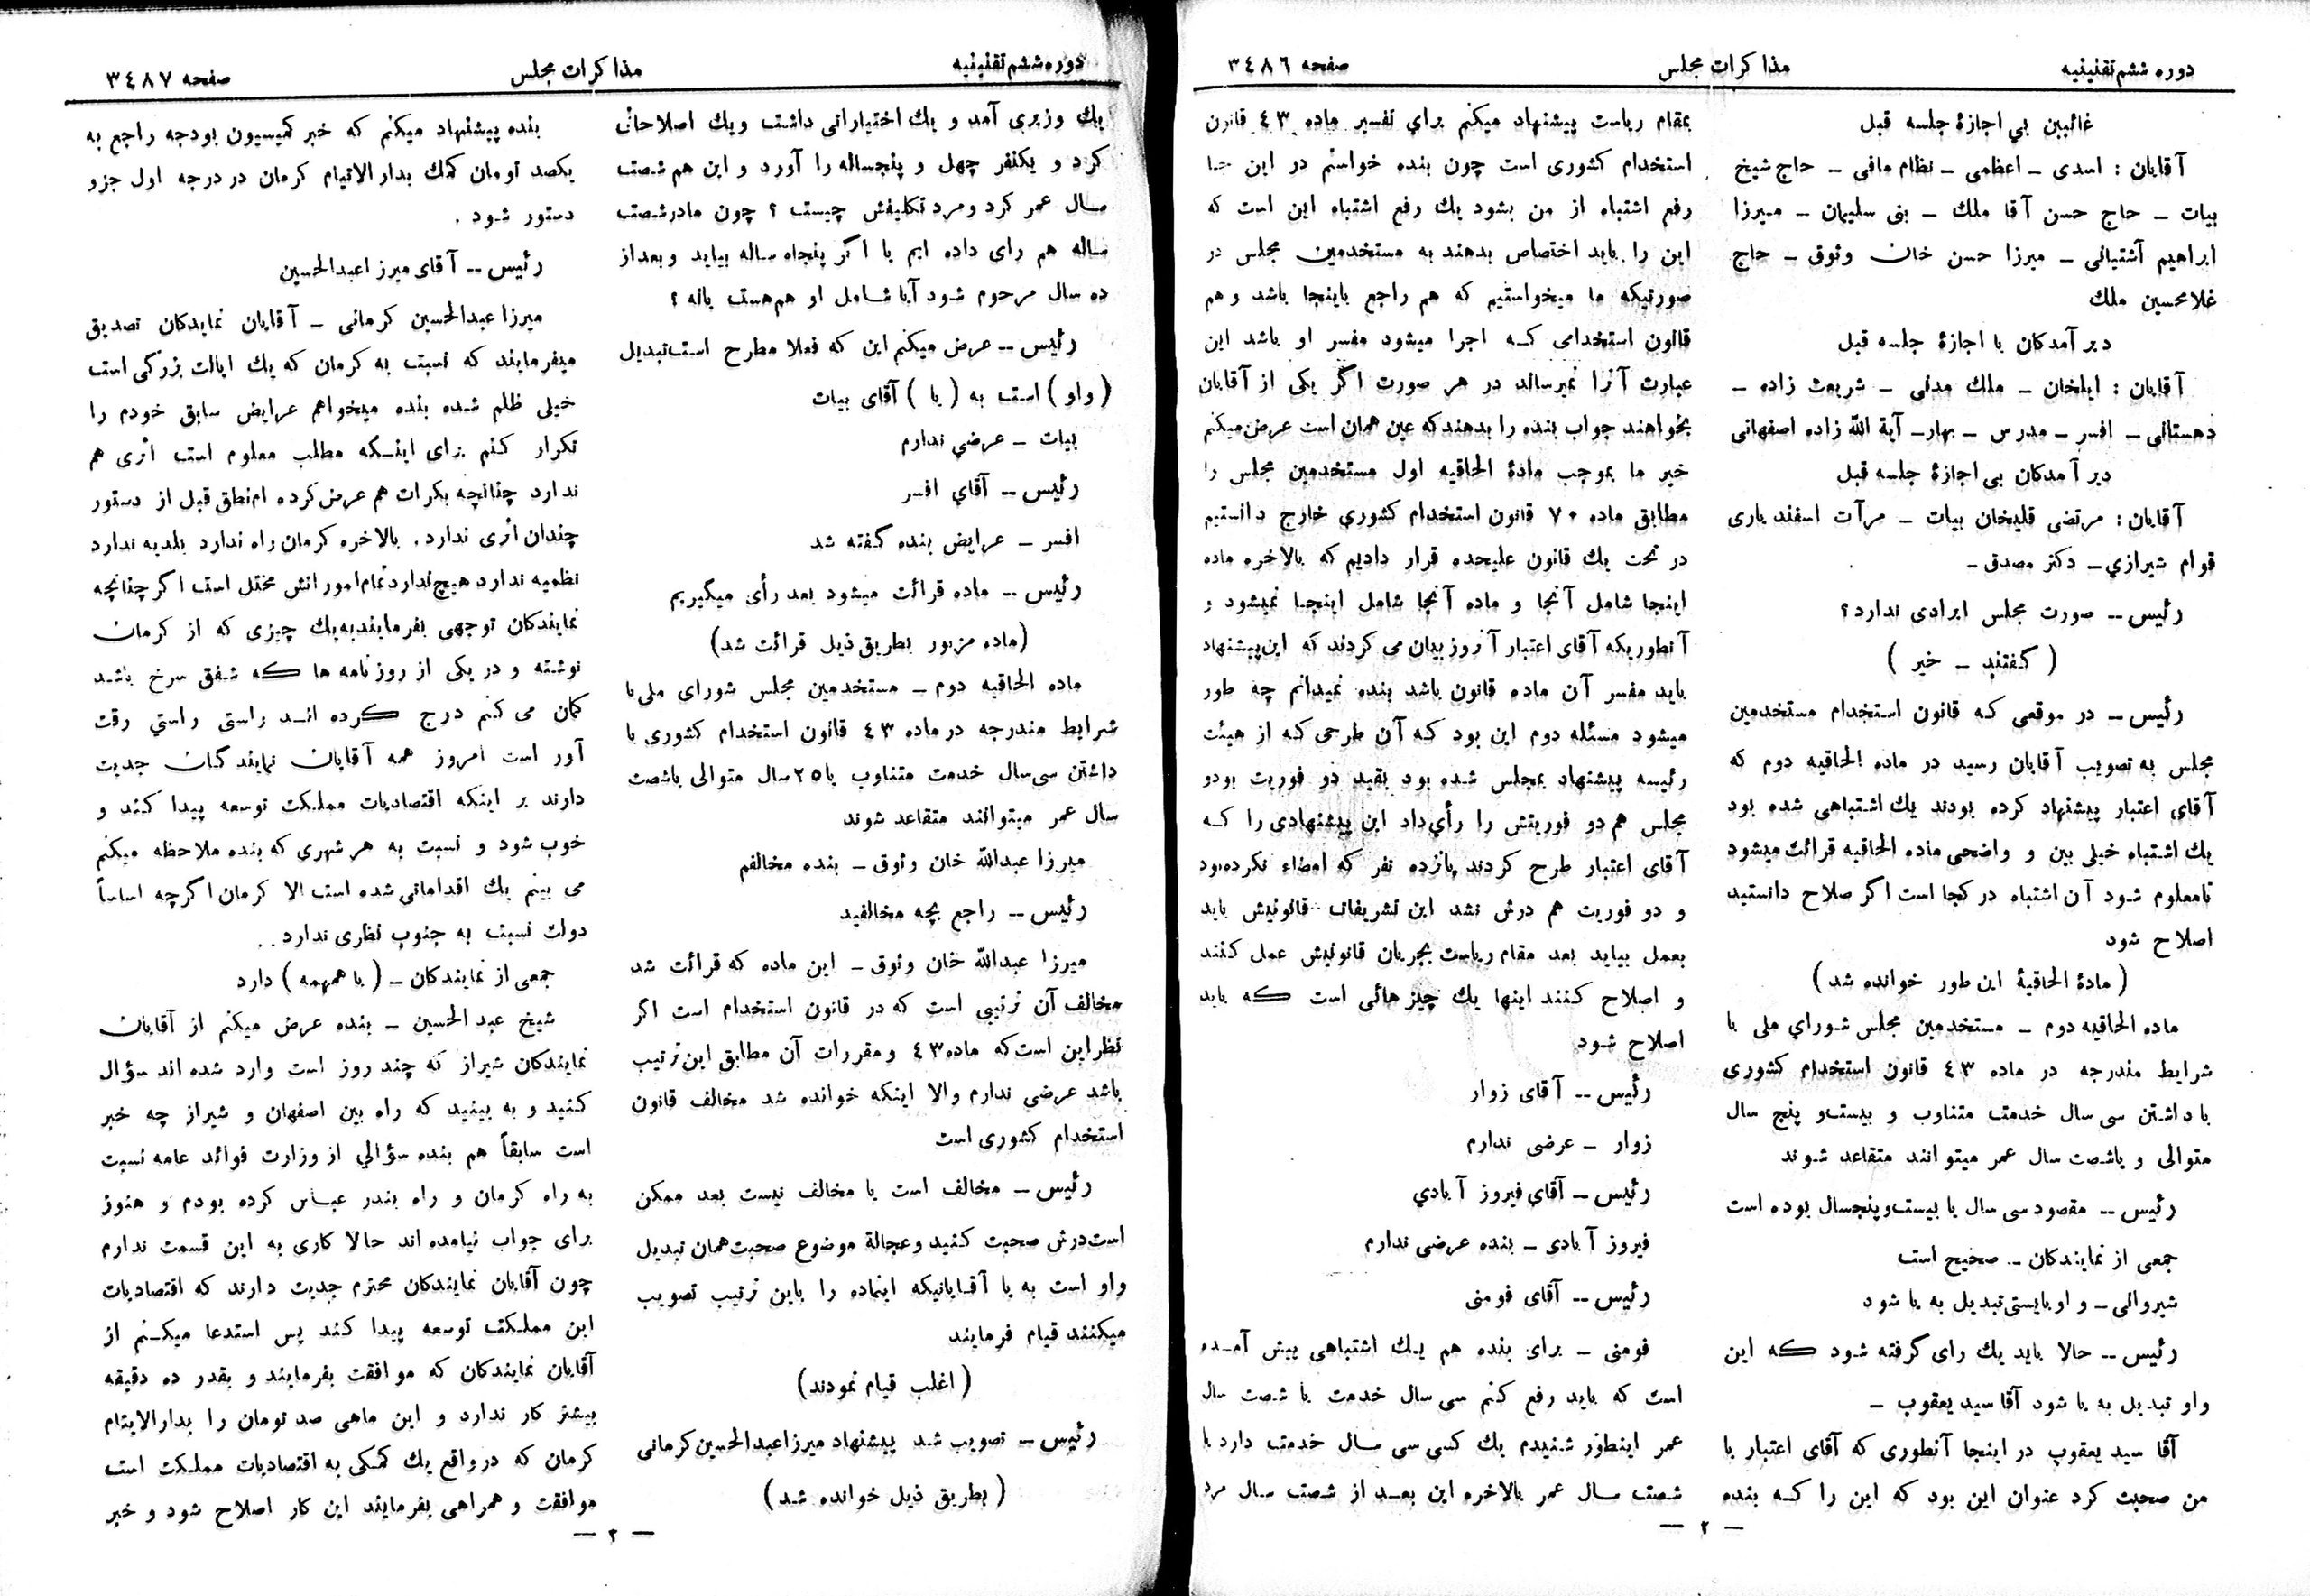 دوره ششم تقنینیه
مذاکرات مجلس
صفحه ٣٤٨٦
غائبین بي اجازهٔ جلسه قبل
آقایان : اسدی ـ اعظمی ـ نظام مافی ـ حاج شیخ
بیات ـ حاج حسن آقا ملك ـ بنی سلیمان ـ میرزا
ابراهیم آشتیانی ـ میرزا حسن خان وثوق ـ حاج
غلامحسین ملك
دیر آمدکان با اجازهٔ جلسه قبل
آقایان : ایلخان ـ ملك مدنی ـ شریعت زاده ـ
دهستانی ـ افسر ـ مدرس ـ بهار ـ آیة الله زاده اصفهانی
دیر آمدکان بی اجازهٔ جلسه قبل
آقایان : مرتضی قلیخان بیات ـ مرآت اسفندیاری
قوام شیرازي ـ دکتر مصدق ـ
رئیس ــ صورت مجلس ایرادی ندارد ؟
( گفتند ـ خیر )
رئیس ـ در موقعی که قانون استخدام مستخدمین
مجلس به تصویب آقایان رسید در ماده الحاقیه دوم که
آقاي اعتبار پیشنهاد کرده بودند یك اشتباهی شده بود
یك اشتباه خیلی بین و واضحی ماده الحاقیه قرائت میشود
تامعلوم شود آن اشتباه در کجا است اگر صلاح دانستید
اصلاح شود
( مادهٔ الحاقیهٔ این طور خوانده شد )
ماده الحاقیه دوم ـ مستخدمین مجلس شوراي ملی با
شرایط مندرجه در ماده ٤٣ قانون استخدام کشوری
با داشتن سی سال خدمت متناوب و بیست و پنج سال
متوالی و یاشصت سال عمر میتوانند متقاعد شوند
رئیس ــ مقصود سی سال یا بیست و پنجسال بوده است
جمعی از نمایندکان ـ صحیح است
شیروانی ـ و او بایستی تبدیل به یا شود
رئیس ــ حالا باید یك رای گرفته شود که این
واو تبدیل به یا شود آقا سید یعقوب ـ
آقا سید یعقوب در اینجا آنطوری که آقای اعتبار با
من صحبت کرد عنوان این بود که این را که بنده
بمقام ریاست پیشنهاد میکنم براي تفسیر ماده ٤٣ قانون
استخدام کشوری است چون بنده خواستم در این جا
رفع اشتباه از من بشود یك رفع اشتباه این است که
این را باید اختصاص بدهند به مستخدمین مجلس در
صورتیکه ما میخواستیم که هم راجع باینجا باشد و هم
قانون استخدامی که اجرا میشود مفسر او باشد این
عبارت آنرا نمیرساند در هر صورت اگر یکی از آقایان
بخواهند جواب بنده را بدهند که عین همان است عرض میکنم
خیر ما بموجب مادهٔ الحاقیه اول مستخدمین مجلس را
مطابق ماده ٧٠ قانون استخدام کشوري خارج دانستیم
در تحت یك قانون علیحده قرار دادیم که بالاخره ماده
اینجا شامل آنجا و ماده آنجا شامل اینجا نمیشود و
آنطوریکه آقای اعتبار آنروز بیان می کردند که این پیشنهاد
باید مفسر آن ماده قانون باشد بنده نمیدانم چه طور
میشود مسئله دوم این بود که آن طرحی که از هیئت
رئیسه پیشنهاد بمجلس شده بود بقید دو فوریت بودو
مجلس هم دو فوریتش را رأی داد این پیشنهادی را که
آقای اعتبار طرح کردند پانزده نفر که امضاء نکرده بود
و دو فوریت هم درش نشد این تشریفات قانونیش باید
بعمل بیاید بعد مقام ریاست بجریان قانونیش عمل کنند
و اصلاح کنند اینها یك چیز هائی است که باید
اصلاح شود
رئیس ــ آقای زوار
زوار ـ عرضی ندارم
رئیس ــ آقاي فیروز آبادي
فیروز آبادی ـ بنده عرضی ندارم
رئیس ــ آقای فومنی
فومنی ـ برای بنده هم یك اشتباهی پیش آمده
است که باید رفع کنم سی سال خدمت با شصت سال
عمر اینطور شنیدم یك کسی سی سال خدمت دارد با
شصت سال عمر بالاخره این بعد از شصت سال مرد
ـ ٢ ـ
دوره ششم تقنینیه
مذاکرات مجلس
صفحه ٣٤٨٧
یك وزیری آمد و یك اختیاراتی داشت و یك اصلاحاتی
کرد و یکنفر چهل و پنجساله را آورد و این هم شصت
سال عمر کرد و مرد تکلیفش چیست ؟ چون مادرشصت
ساله هم رای داده ایم یا اگر پنجاه ساله بیاید و بعد از
ده سال مرحوم شود آیا شامل او هم هست یانه ؟
رئیس ــ عرض میکنم این که فعلا مطرح است تبدیل
( واو ) است به ( یا ) آقای بیات
بیات ـ عرضي ندارم
رئیس ــ آقاي افسر
افسر ـ عرایض بنده گفته شد
رئیس ــ ماده قرائت میشود بعد رأی میگیریم
(ماده مزبور بطریق ذیل قرائت شد)
ماده الحاقیه دوم ـ مستخدمین مجلس شورای ملی با
شرایط مندرجه در ماده ٤٣ قانون استخدام کشوری با
داشتن سی سال خدمت متناوب یا ٢٥ سال متوالی یاشصت
سال عمر میتوانند متقاعد شوند
میرزا عبدالله خان وثوق ـ بنده مخالفم
رئیس ــ راجع بچه مخالفید
میرزا عبدالله خان وثوق ـ این ماده که قرائت شد
مخالف آن ترتیبی است که در قانون استخدام است اگر
نظر این است که ماده ٤٣ و مقررات آن مطابق این ترتیب
باشد عرضی ندارم والا اینکه خوانده شد مخالف قانون
استخدام کشوری است
رئیس ـ مخالف است یا مخالف نیست بعد ممکن
است درش صحبت کنید و عجالة موضوع صحبت همان تبدیل
واو است به یا آقایانیکه اینماده را باین ترتیب تصویب
میکنند قیام فرمایند
( اغلب قیام نمودند)
رئیس ـ تصویب شد پیشنهاد میرزا عبدالحسین کرمانی
( بطریق ذیل خوانده شد )
بنده پیشنهاد میکنم که خبر کمیسیون بودجه راجع به
یکصد تومان کمك بدار الایتام کرمان در درجه اول جزو
دستور شود .
رئیس ــ آقای میرزا عبدالحسین
میرزا عبدالحسین کرمانی ـ آقایان نمایندکان تصدیق
میفرمایند که نسبت به کرمان که یك ایالت بزرگی است
خیلی ظلم شده بنده میخواهم عرایض سابق خودم را
تکرار کنم برای اینکه مطلب معلوم است اثری هم
ندارد چنانچه بکرات هم عرض کرده ام نطق قبل از دستور
چندان اثری ندارد . بالاخره کرمان راه ندارد بلدیه ندارد
نظمیه ندارد هیچ ندارد تمام اموراتش مختل است اگر چنانچه
نمایندکان توجهی بفرمایند به یك چیزی که از کرمان
نوشته و در یکی از روزنامه ها که شفق سرخ باشد
گمان می کنم درج کرده اند راستی راستي رقت
آور است امروز همه آقایان نمایندکان جدیت
دارند بر اینکه اقتصادیات مملکت توسعه پیدا کند و
خوب شود و نسبت به هر شهری که بنده ملاحظه میکنم
می بینم یك اقداماتی شده است الا کرمان اگرچه اساساً
دولت نسبت به جنوب نظری ندارد . .
جمعی از نمایندکان ـ ( با همهمه ) دارد
شیخ عبد الحسین ـ بنده عرض میکنم از آقایان
نمایندکان شیراز که چند روز است وارد شده اند سؤال
کنید و به بینید که راه بین اصفهان و شیراز چه خبر
است سابقاً هم بنده سؤالي از وزارت فوائد عامه نسبت
به راه کرمان و راه بندر عباس کرده بودم و هنوز
برای جواب نیامده اند حالا کاری به این قسمت ندارم
چون آقایان نمایندکان محترم جدیت دارند که اقتصادیات
این مملکت توسعه پیدا کند پس استدعا میکنم از
آقایان نمایندکان که موافقت بفرمایند و بقدر ده دقیقه
بیشتر کار ندارد و این ماهی صد تومان را بدارالایتام
کرمان که در واقع یك کمکی به اقتصادیات مملکت است
موافقت و همراهی بفرمایند این کار اصلاح شود و خبر
ـ ٣ ـ